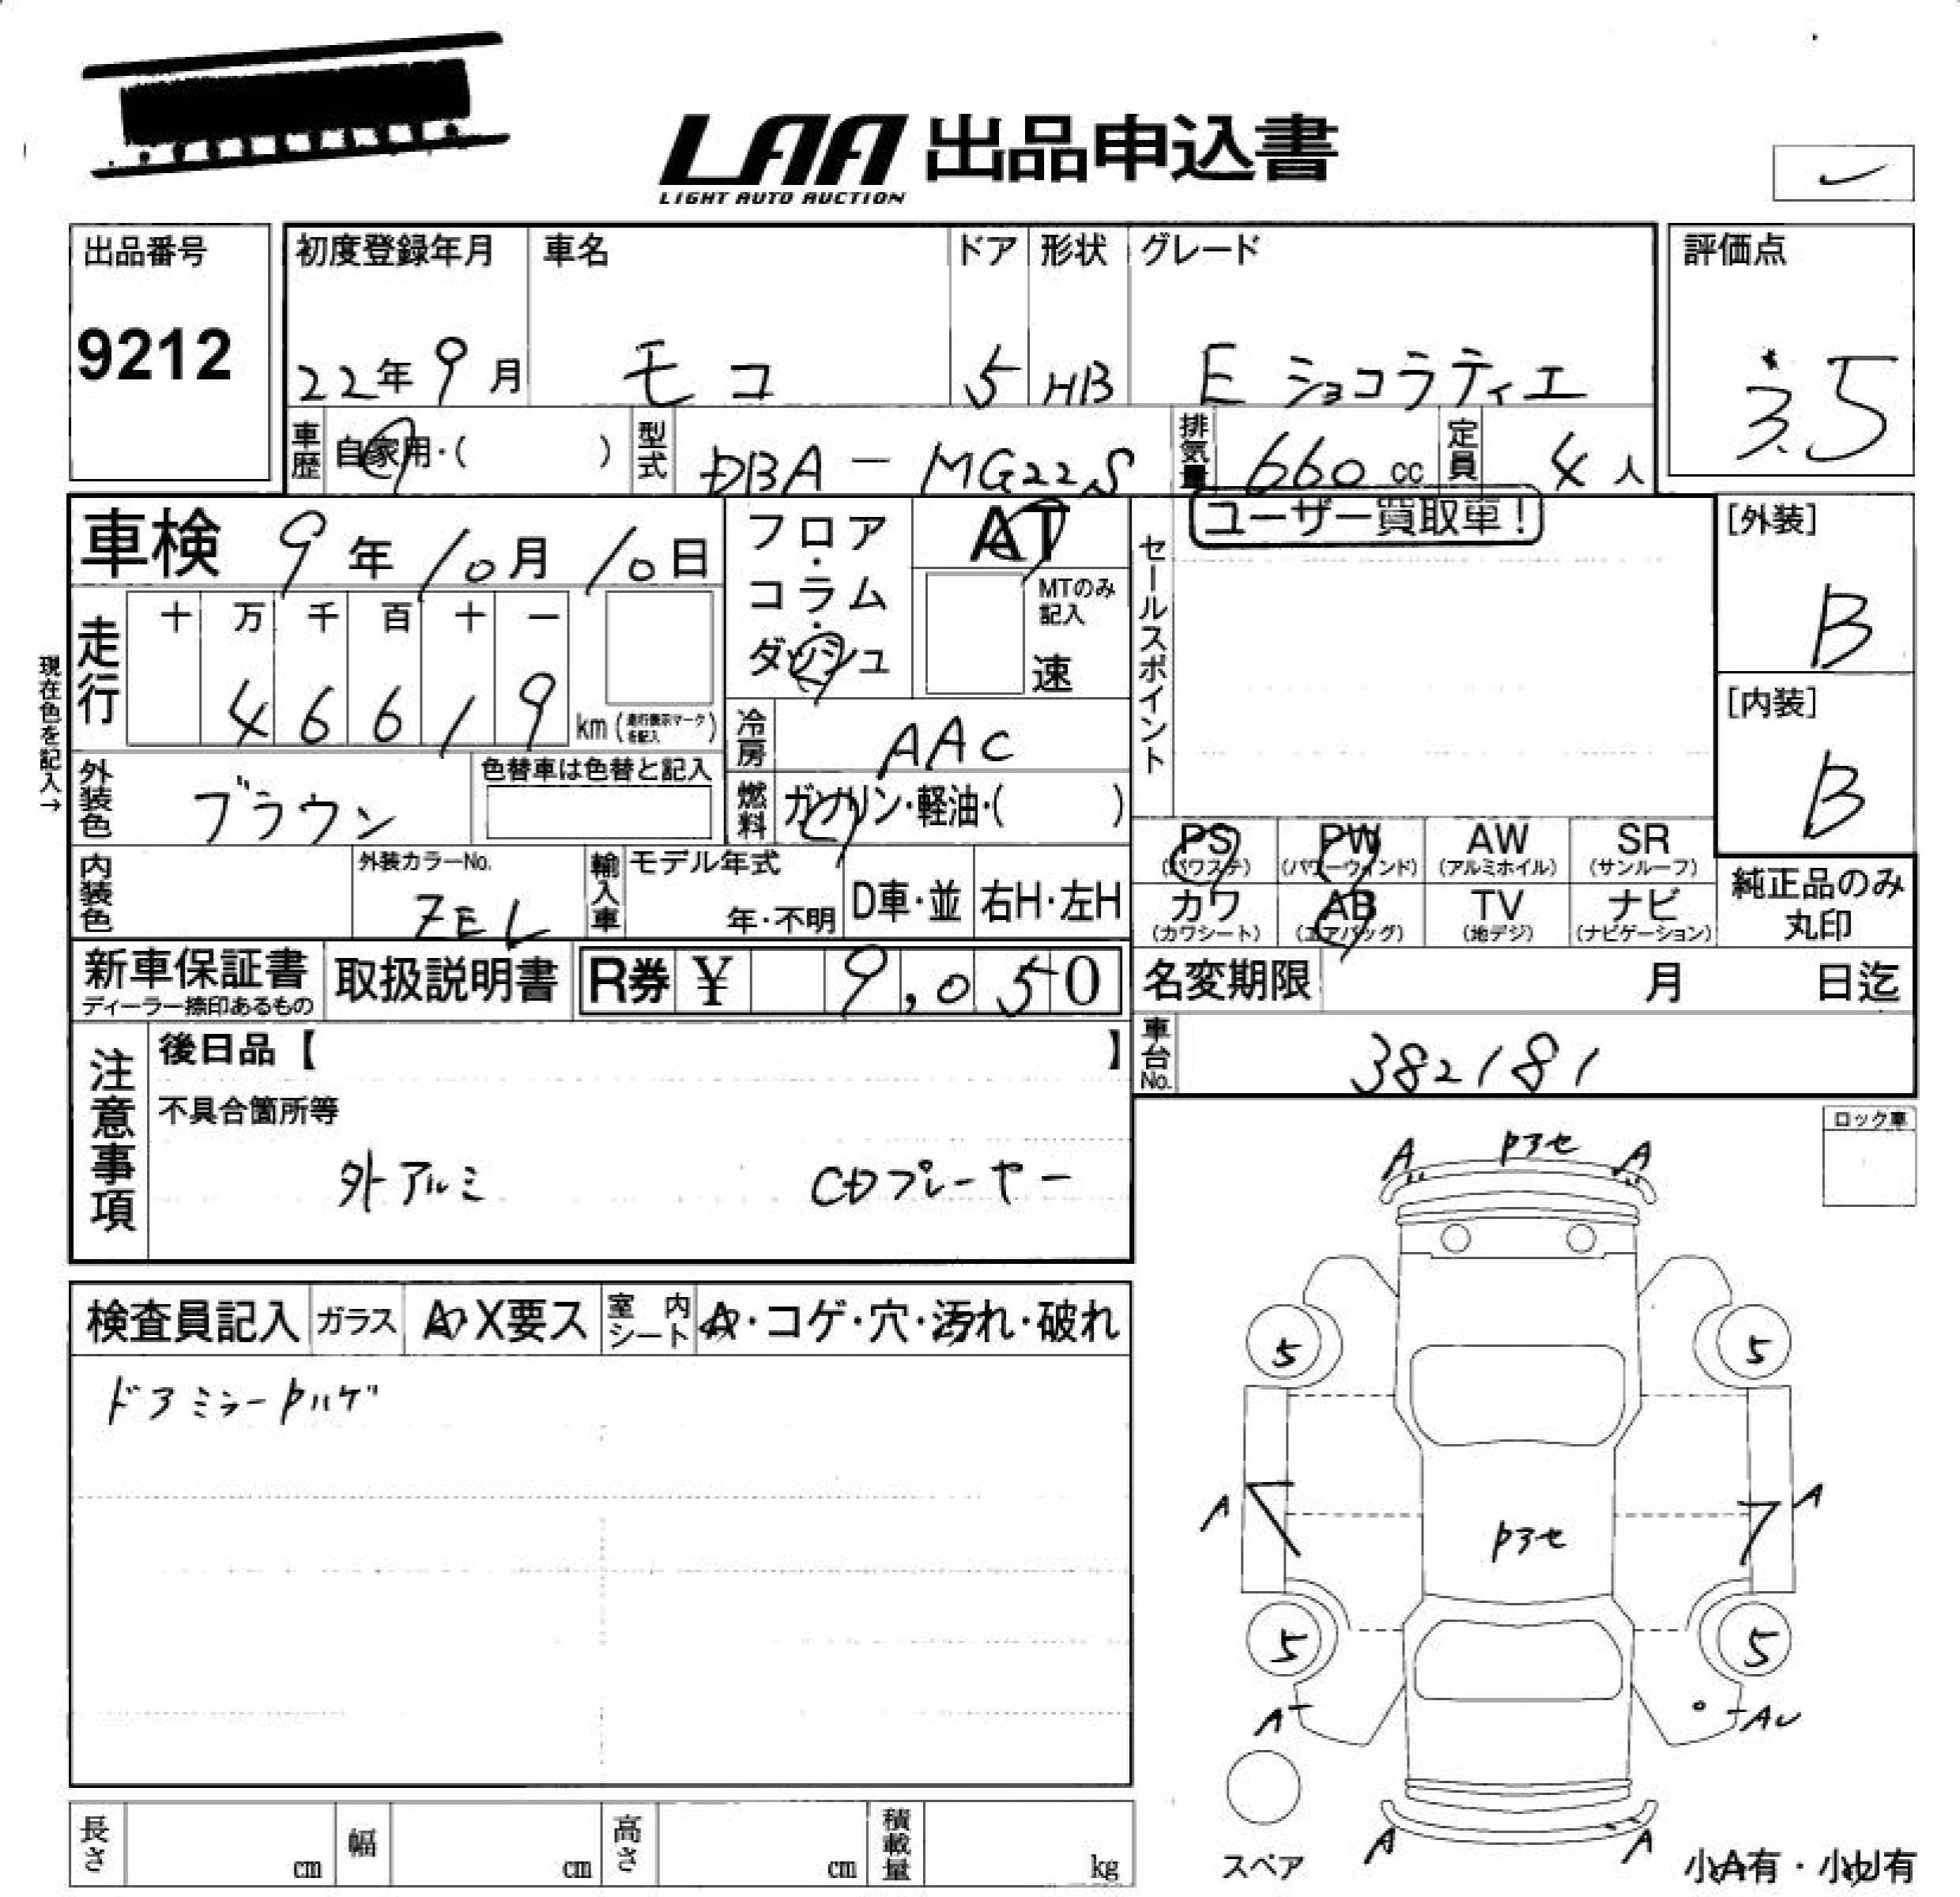 LAA 出品申込書
LIGHT AUTO AUCTION
出品番号
9212
初度登録年月
22年 9月
車名
モコ
ドア
5
形状
HB
グレード
E ショコラティエ
評価点
3.5
車歴 自家用・( )
型式 DBA - MG22S
排気量 660 cc
定員 4人
車検 9年 10月 10日
フロア・コラム・ダッシュ
AT
MTのみ記入
速
セールスポイント
ユーザー買取車!
[外装]
B
[内装]
B
現在色を記入→
走行
十 万 千 百 十 一
4 6 6 1 9
km (走行表示マークを記入)
冷房 AAC
外装色 ブラウン
色替車は色替と記入
燃料 ガソリン・軽油・( )
PS (パワステ)
PW (パワーウィンド)
AW (アルミホイル)
SR (サンルーフ)
カワ (カワシート)
AB (エアバッグ)
TV (地デジ)
ナビ (ナビゲーション)
純正品のみ丸印
内装色
外装カラーNo.
ZEL
輸入車
モデル年式
年・不明
D車・並
右H・左H
新車保証書
ディーラー捺印あるもの
取扱説明書
R券 ¥ 9,050
名変期限 月 日迄
車台No. 382181
注意事項
後日品【 】
不具合箇所等
外アルミ CDプレーヤー
ロック車
A Pアセ A
検査員記入
ガラス
A X要ス
室内シート
A・コゲ・穴・汚れ・破れ
ドアミラーPハゲ
5 5
A A
Pアセ
5 5
A AU
A A
スペア
小A有・小U有
長さ cm
幅 cm
高さ cm
積載量 kg